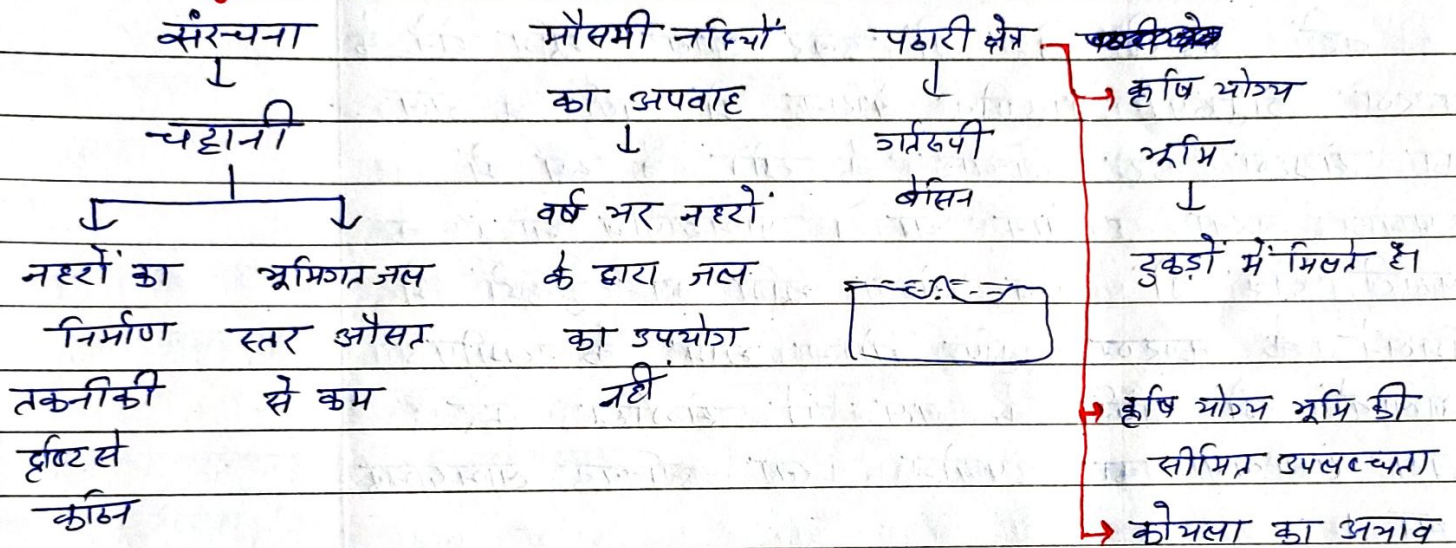 संरचना
चट्टानी
नहरों का
निर्माण
तकनीकी
दृष्टि से
कठिन
भूमिगत जल
स्तर औसत
से कम
मौसमी नदियों
का अपवाह
वर्ष भर नहरों
के द्वारा जल
का उपयोग
नहीं
पठारी क्षेत्र
गर्तरूपी
बेसिन
कृषि योग्य
भूमि
टुकड़ों में मिलते है।
कृषि योग्य भूमि की
सीमित उपलब्धता
कोयला का अभाव